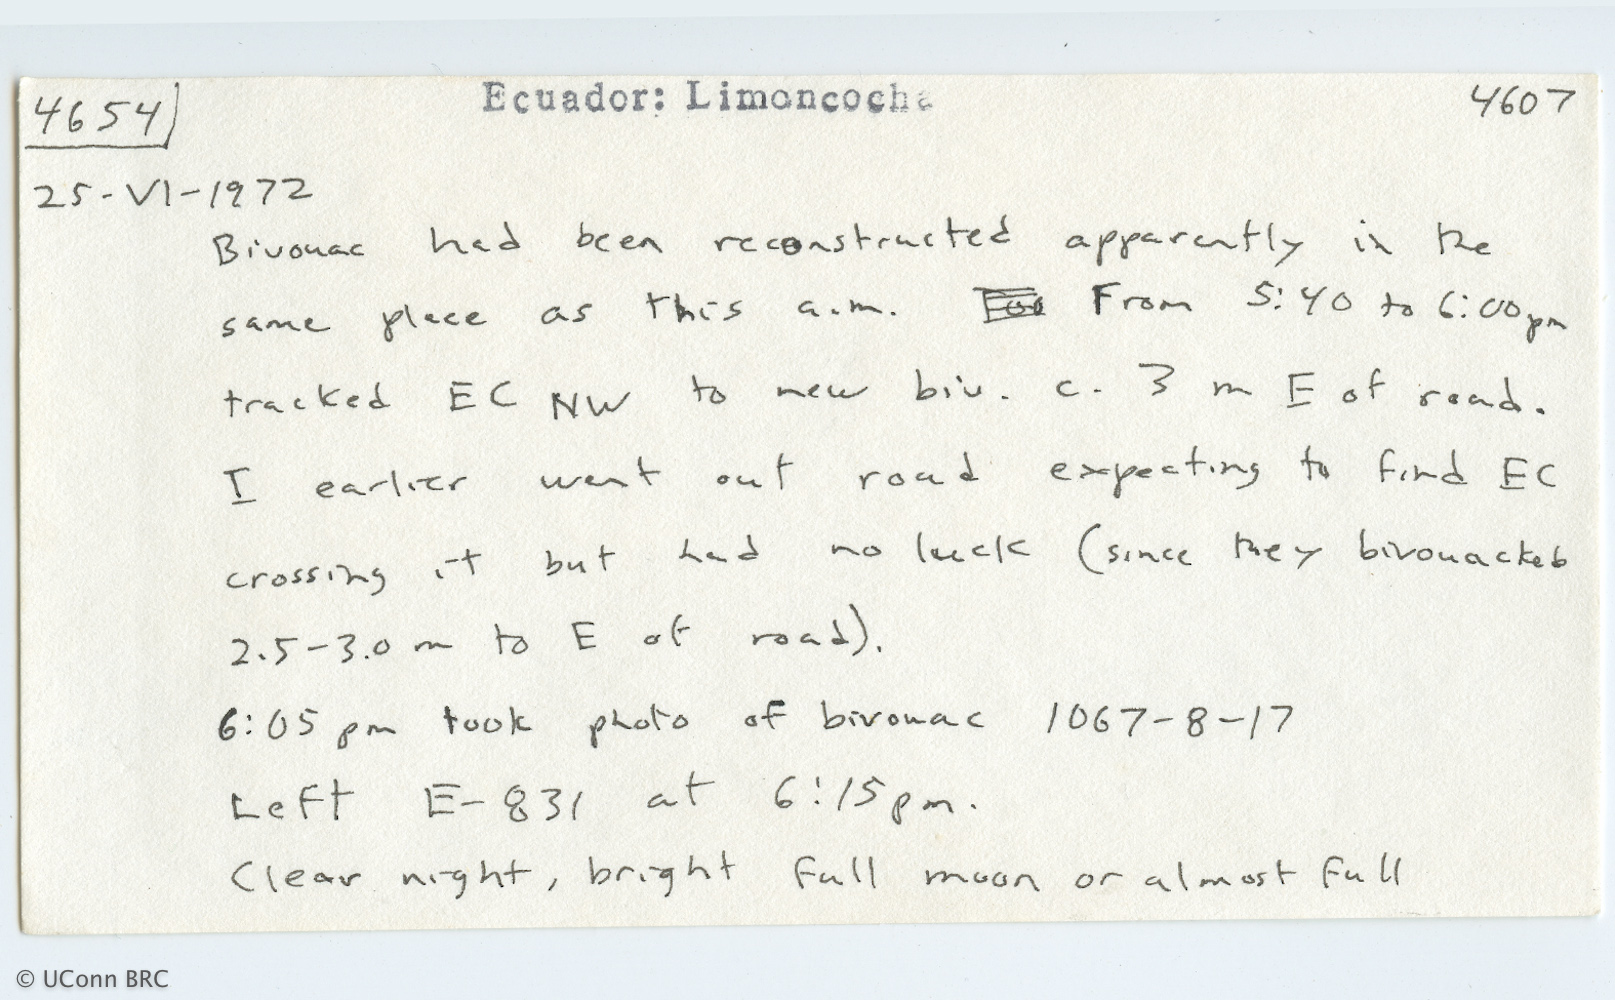 4654 Ecuador: Limoncocha 4607
25-VI-1972
Bivouac had been reconstructed apparently in the
same place as this a.m. From 5:40 to 6:00pm
tracked EC NW to new biv. c. 3 m E of road.
I earlier went out road expecting to find EC
crossing it but had no luck (since they bivouacked
2.5-3.0 m to E of road).
6:05 pm took photo of bivouac 1067-8-17
Left E-831 at 6:15pm.
Clear night, bright full moon or almost full
© UConn BRC